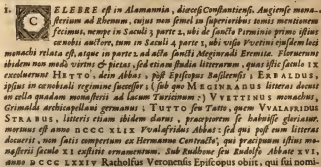 1. CELEBRE est in Alamannia, diœcesi Constantiensi, Augiense mona-
sterium ad Rhenum, cujus non semel in superioribus tomis mentionem
fecimus, nempe in Sæculi 3 parte 2, ubi de sancto Pirminio primo istius
cœnobii auctore, tum in Sæculi 4 parte 2, ubi visio Wettini ejusdem loci
monachi relata est, atque in parte 2 ad acta sancti Meginradi Eremitæ. Floruerunt
ibidem non modò virtus & pietas, sed etiam studia litterarum, quas istic sæculo IX
excoluerunt HETTO, dein Abbas, post Episcopus Basileensis; ERBALDUS,
ipsius in cœnobii regimine successor; (sub quo MEGINRADUS litteras docuit
in cella quadam monasterii ad lacum Turicinum;) WETTINUS monachus,
Grimaldi archicapellani germanus; TUTTO seu Tatto, quem WALAFRIDUS
STRABUS, litteris etiam ibidem clarus, præceptorem se habuisse gloriatur.
mortuus est anno DCCC XLIX Walafridus Abbas: sed quâ post eum litteræ
decucurrerint, non satis compertum ex Hermanno Contracto, qui præcipuum istius mo-
nasterii sæculo XI exstitit ornamentum. Sub Rudhone seu Rudolfo Abbate XVI,
anno DCCC LXXIV Ratholfus Veronensis Episcopus obiit, qui sui nomi-